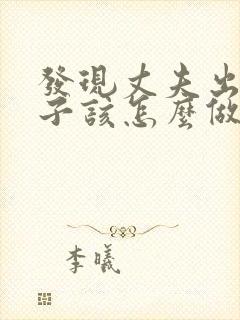 發現丈夫出
子該怎麼做
李曦